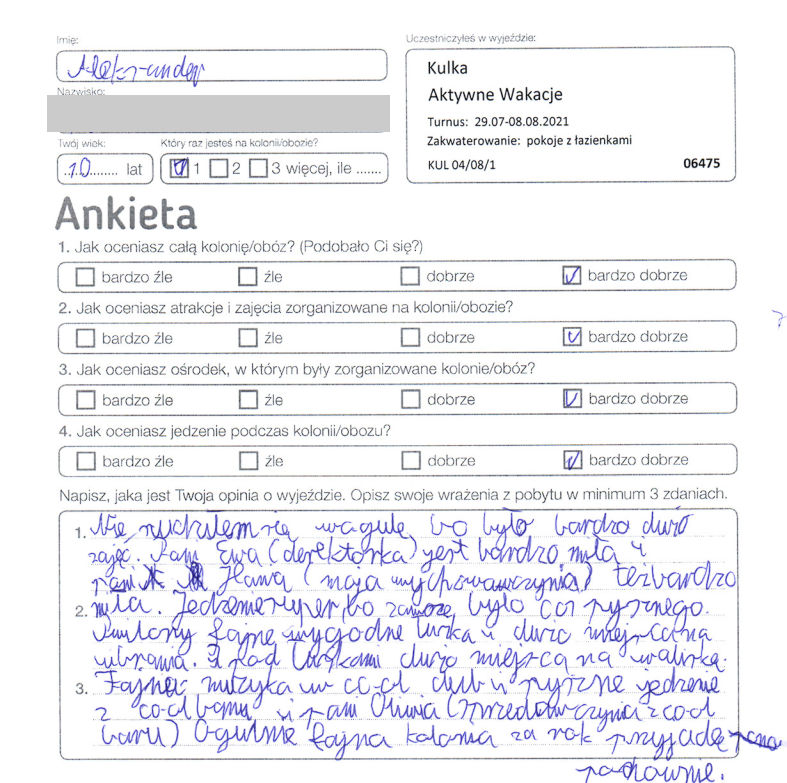 Imię:
Aleksander
Uczestniczyłeś w wyjeździe:
Kulka
Aktywne Wakacje
Turnus: 29.07-08.08.2021
Zakwaterowanie: pokoje z łazienkami
KUL 04/08/1 06475
Nazwisko:
Twój wiek: Który raz jesteś na kolonii/obozie?
10 lat 1 2 3 więcej, ile .......
Ankieta
1. Jak oceniasz całą kolonię/obóz? (Podobało Ci się?)
bardzo źle źle dobrze bardzo dobrze
2. Jak oceniasz atrakcje i zajęcia zorganizowane na kolonii/obozie?
bardzo źle źle dobrze bardzo dobrze
3. Jak oceniasz ośrodek, w którym były zorganizowane kolonie/obóz?
bardzo źle źle dobrze bardzo dobrze
4. Jak oceniasz jedzenie podczas kolonii/obozu?
bardzo źle źle dobrze bardzo dobrze
Napisz, jaka jest Twoja opinia o wyjeździe. Opisz swoje wrażenia z pobytu w minimum 3 zdaniach.
1. Nie się wagule bo było bardzo dużo
zajęć. Pani Ewa (derektorka) jest bardzo miła i
pani Hania (moja wychowawczynia) też bardzo
2. miła. Jedzenie super, bo zawsze było coś pysznego.
fajne wygodne łużka i dużo miejsca na
ubrania. I pod łużkami dużo miejsca na walizkę.
3. Fajna muzyka w co-ol club i pyszne jedzenie
z co-ol baru i pani Oliwia (sprzedawczynia z co-ol
baru) Ogulnie fajna kolonia za rok przyjadę
ponownie.